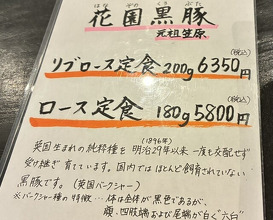 はな ぞの くろ ぶた
花園黒豚
元祖笠原
(税込)
リブロース定食 200g 6350円
(税込)
ロース定食 180g 5800円
(1896年)
英国生まれの純粋種を明治29年以来一度も交配せず
受け継ぎ育てています。国内ではほとんど飼育されていない
黒豚です。(英国バークシャー)
※バークシャー種の特徴…体は全体が黒色であるが、
腹、四肢端および尾端が白く"六白